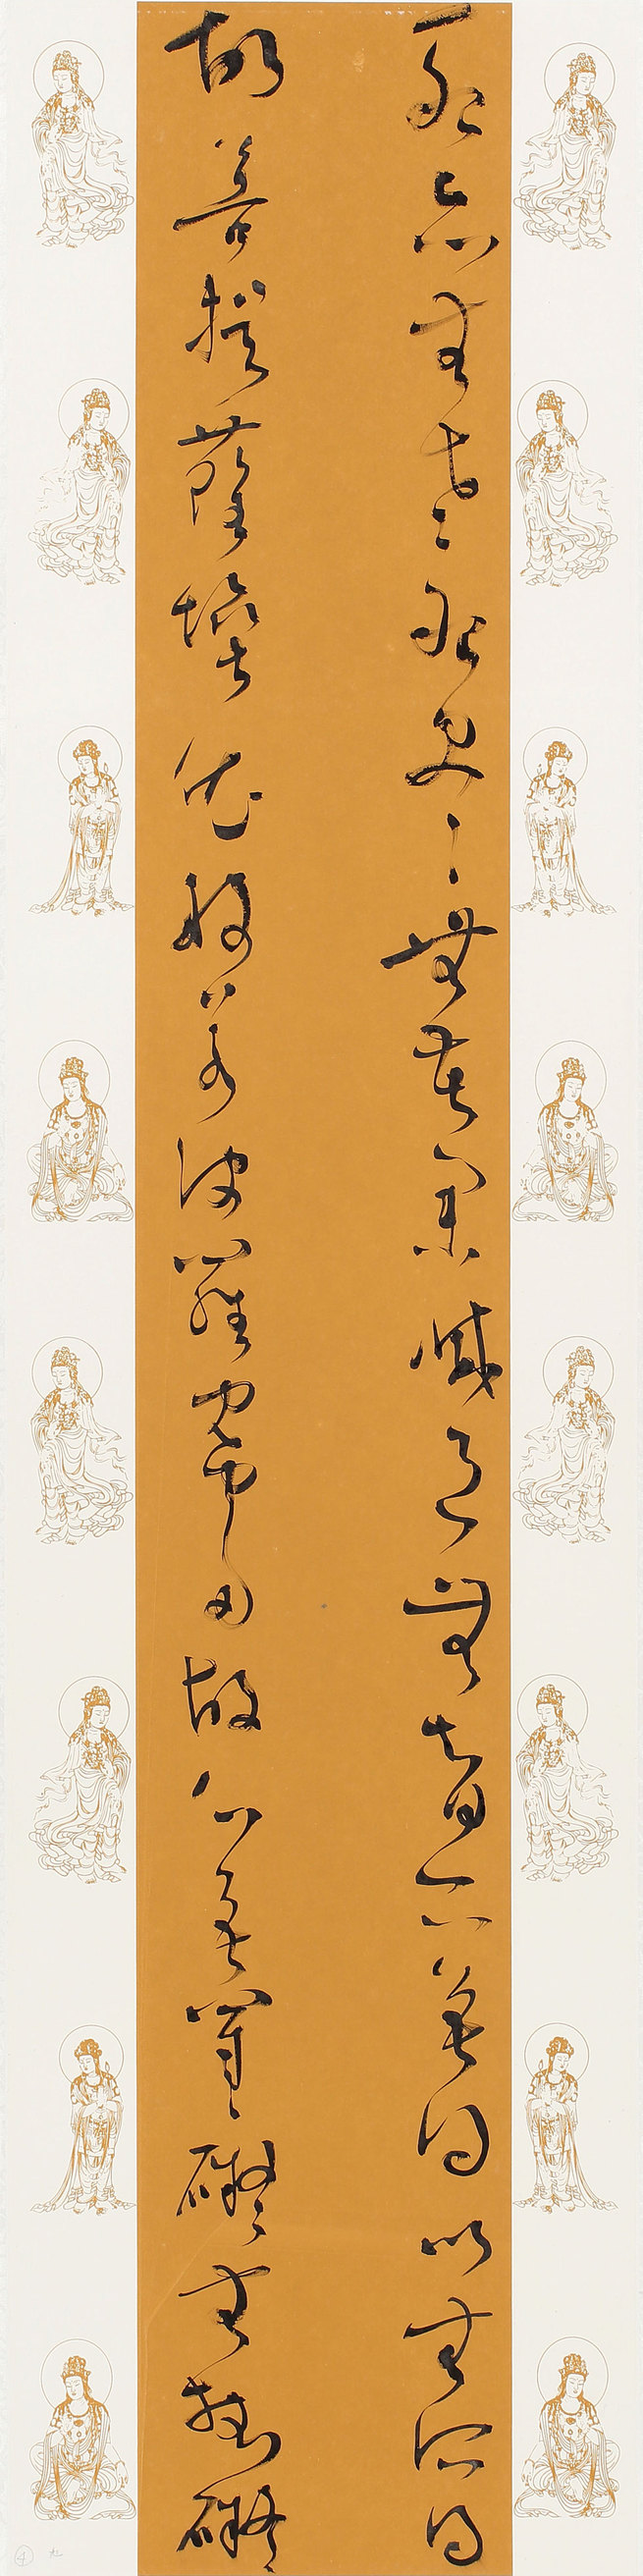 死亦無老死盡無苦集滅道無智亦無得以無所得
故菩提薩埵依般若波羅蜜多故心無罣礙無掛礙
④